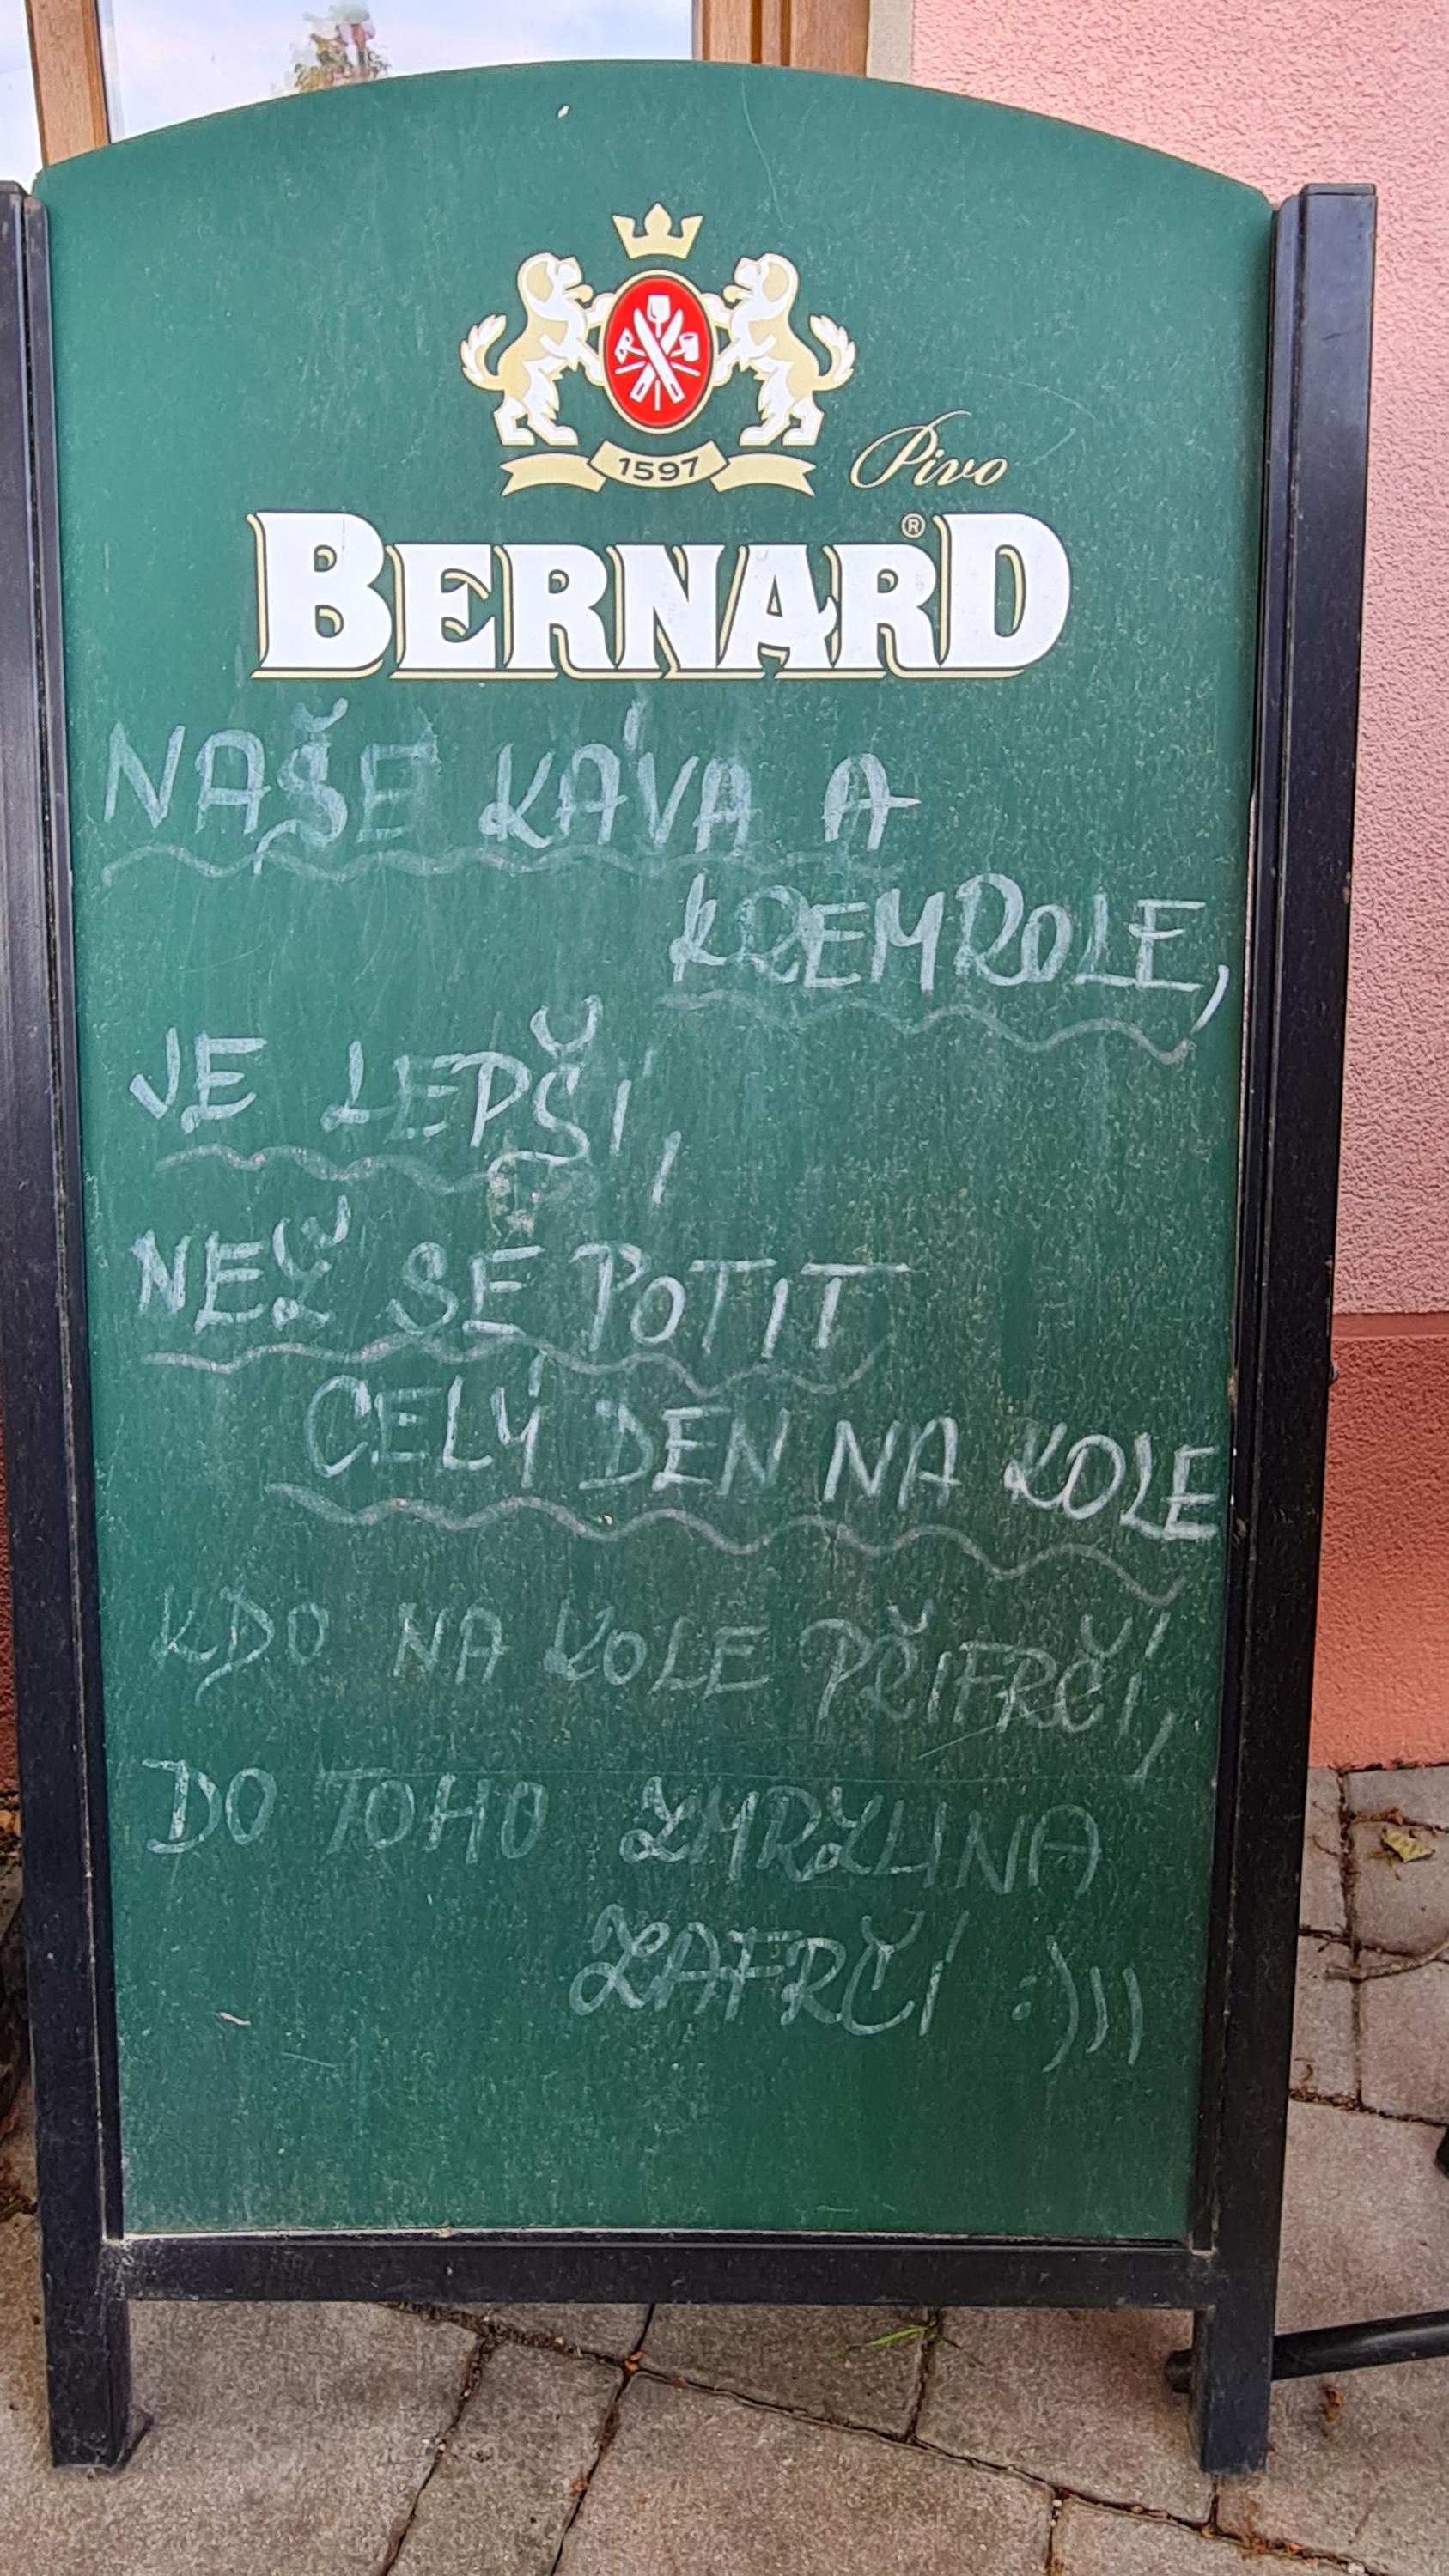 1597
Pivo
BERNARD®
NAŠE KÁVA A
KREMROLE,
JE LEPŠÍ,
NEŽ SE POTIT
CELÝ DEN NA KOLE
KDO NA KOLE PŘIFRČÍ,
DO TOHO ZMRZLINA
ZAFRČÍ :)))